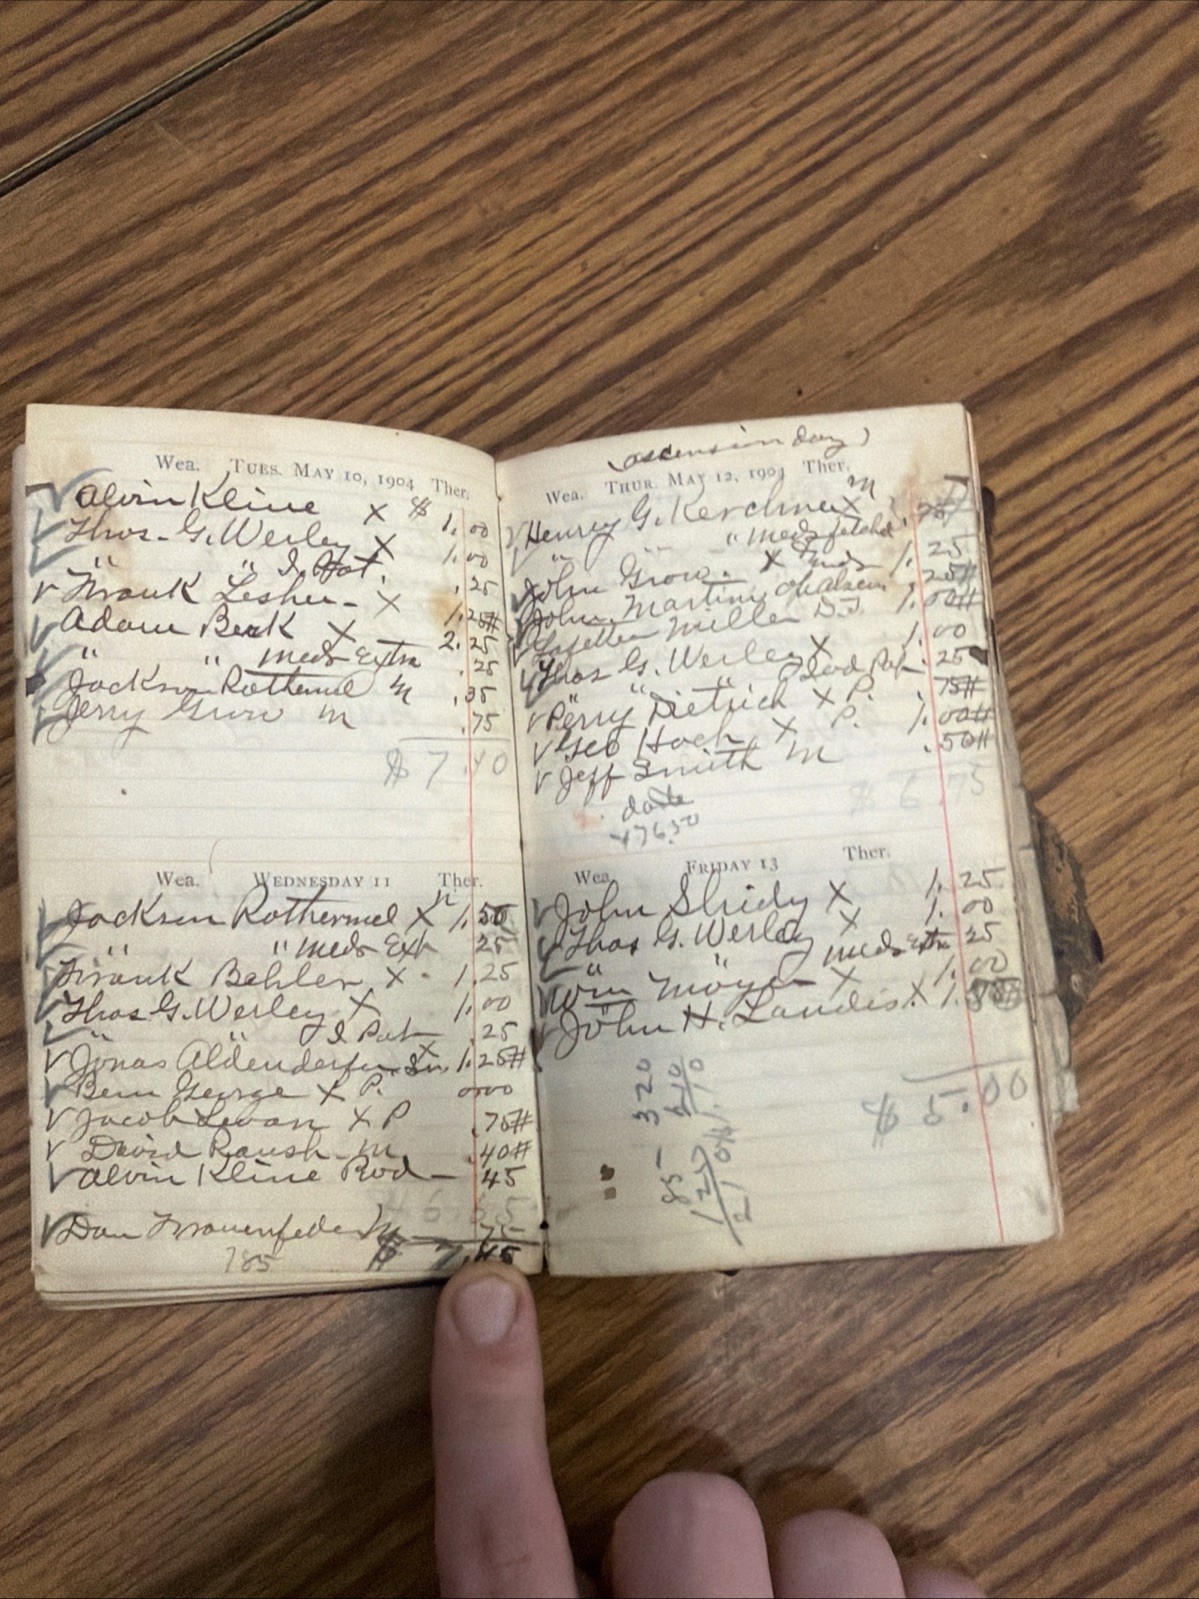 Wea. TUES. MAY 10, 1904 Ther.
Alvin Kline X $ 1.00
Thos. G. Werley X 1.00
" " I Pat. .25
Frank Lesher - X 1.25#
Adam Beck X 2.25
" " meds Extra .25
Jackson Rothermel m .35
Jerry Grow m .75
$ 7.40
Wea. WEDNESDAY 11 Ther.
Jackson Rothermel X 1.50
" " meds Ext 25
Frank Behler X - 1.25
Thos G. Werley X 1.00
" I Pat 25
Jonas Aldenderfer Sr. X 1.25#
Benj George X P. 0000
Jacob Levan X P .75#
David Raush m .40#
Alvin Kline Rod - 45
Dan m
785 $ 7.45
(ascension day)
Wea. THUR. MAY 12, 1904 Ther.
Henry G. Kerchner X m
" " meds fetched .25
John Grow - X 1.25
John Martin .25#
Miller 1.00#
Thos G. Werley X 1.00
" " .25
Perry Dietrich X P. .75#
Geo Hoch X P. 1.00#
Jeff Smith m .50#
$ 6.75
date
476.50
Wea. FRIDAY 13 Ther.
John Shidy X 1.25
Thos G. Werley X 1.00
" " meds Extra 25
Wm Moyer X 1.00
John H. Landis X 1.
$ 5.00
320
85